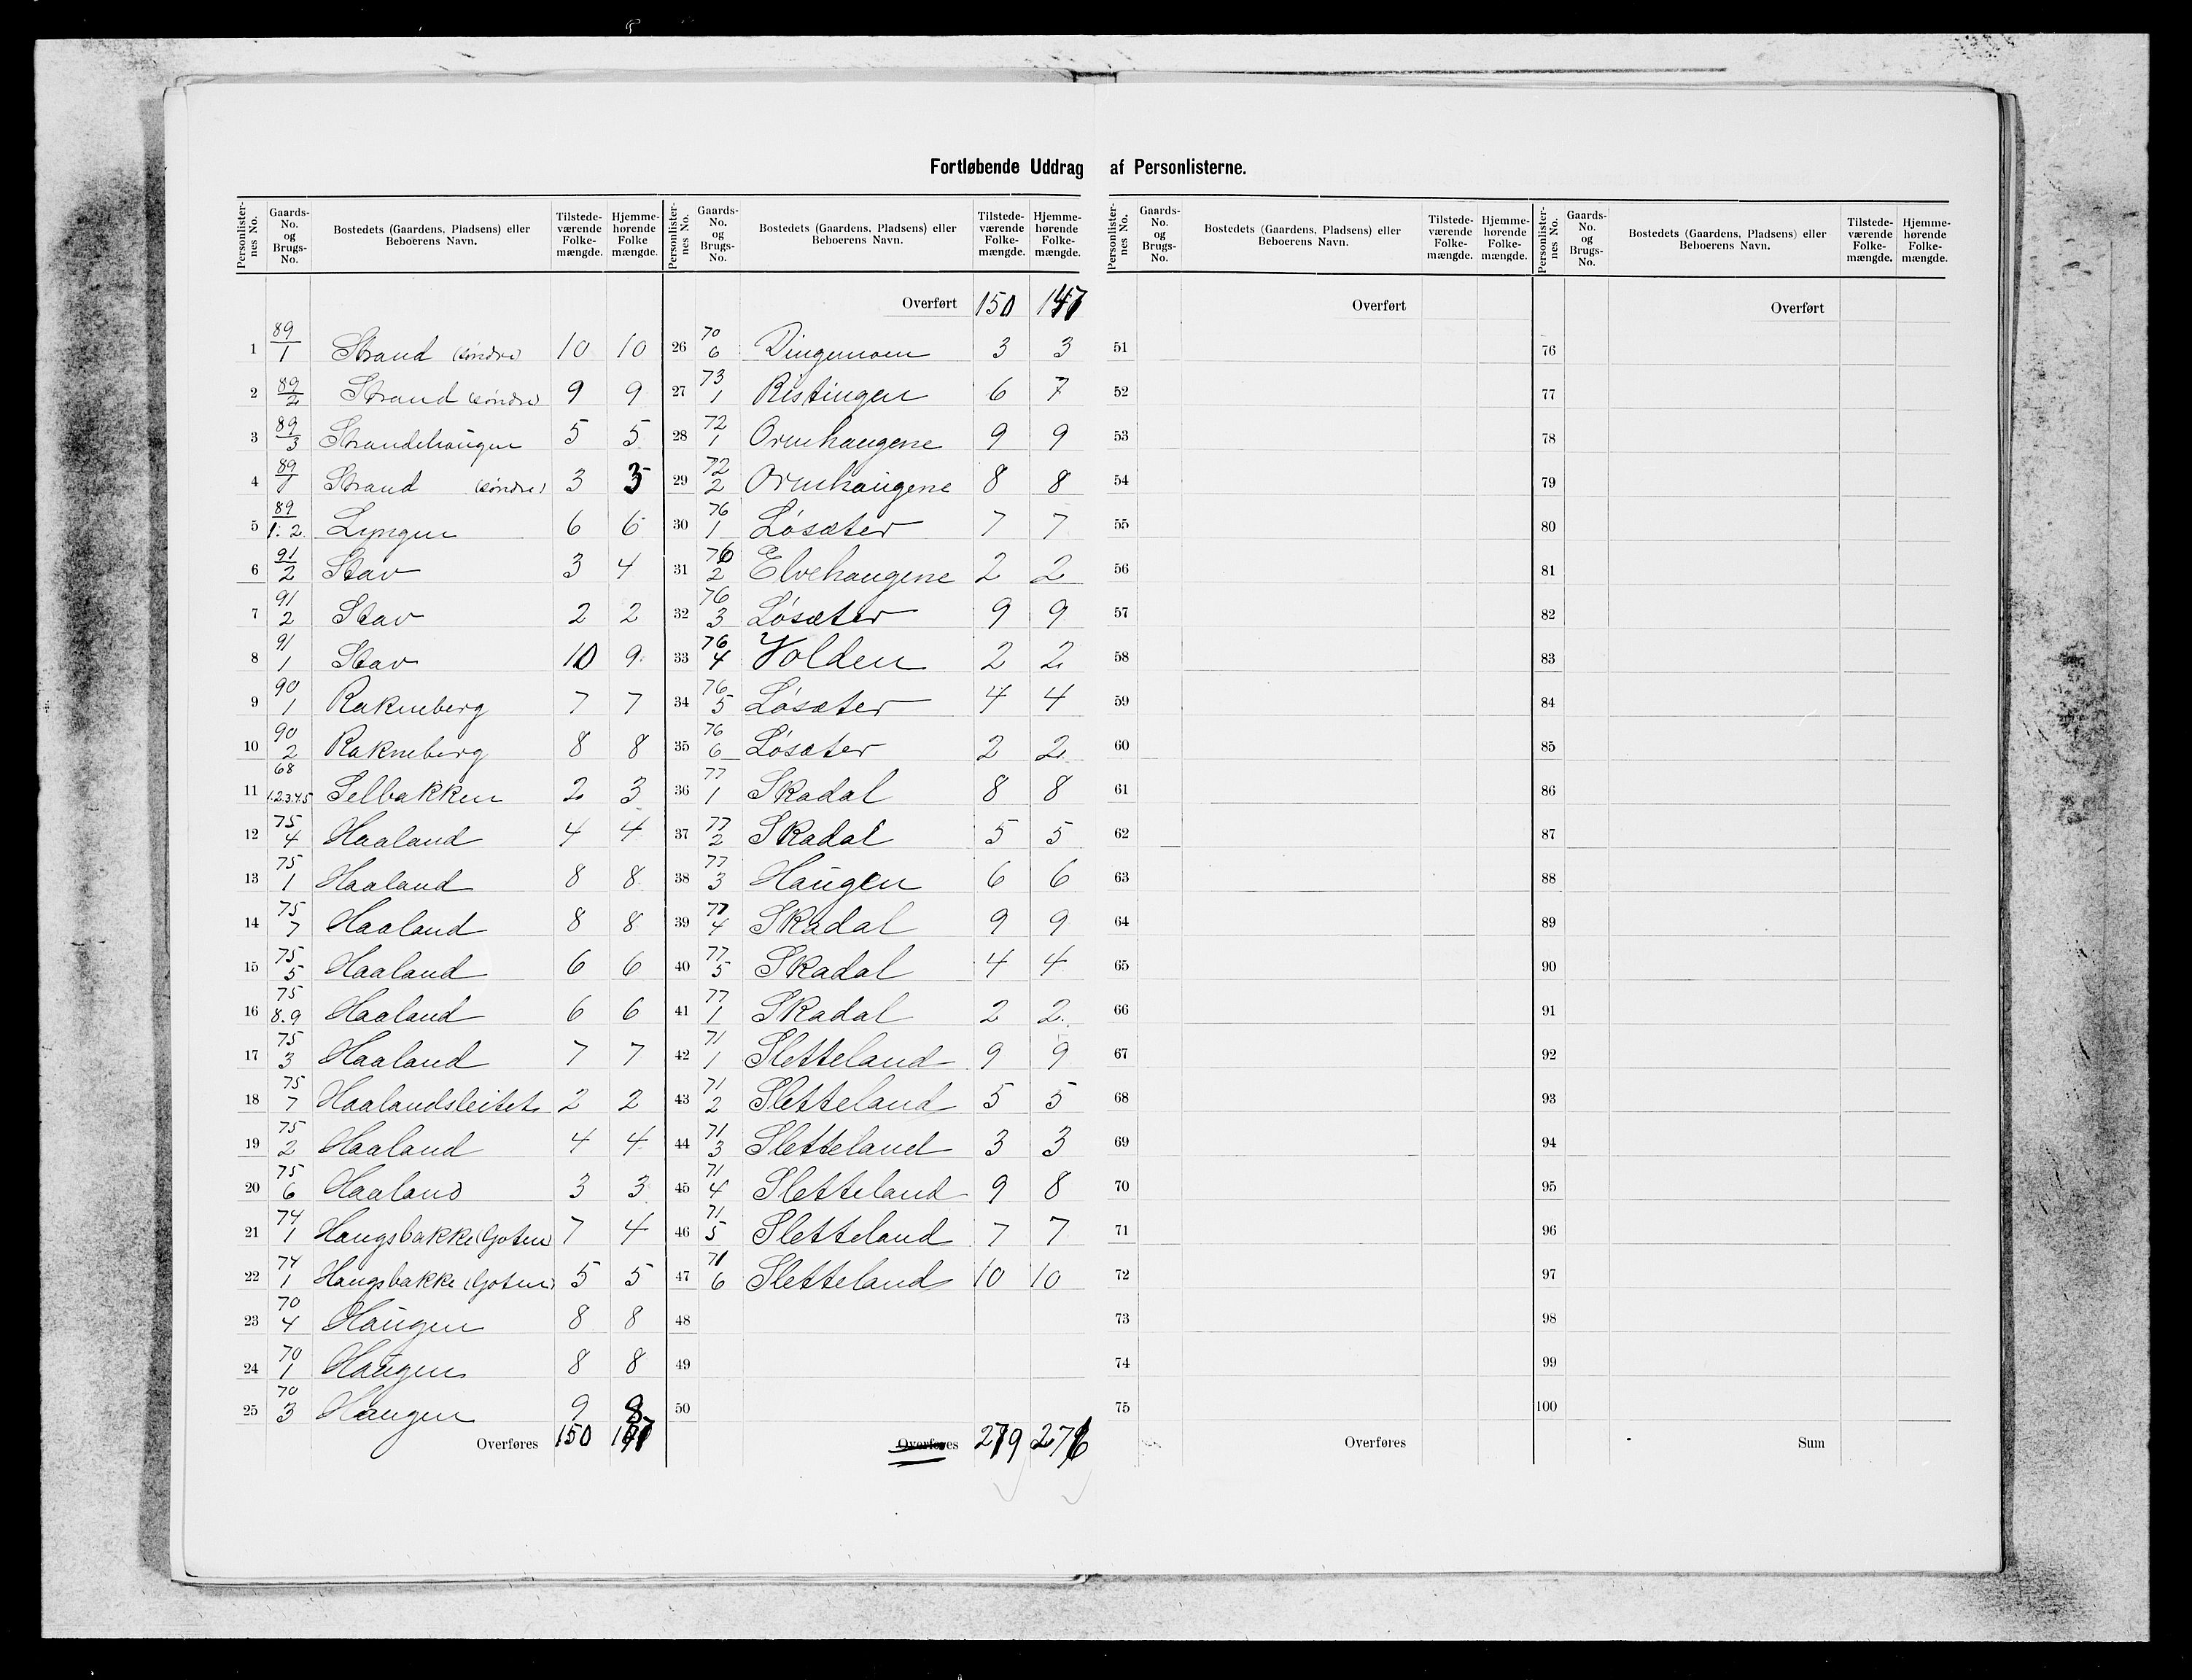 Fortløbende Uddrag af Personlisterne.
Personlisternes No. Gaards-No. og Brugs-No. Bostedets (Gaardens, Pladsens) eller Beboerens Navn. Tilstedeværende Folkemængde. Hjemmehørende Folkemængde.
1 89/1 Strand (søndre) 10 10
2 89/2 Strand (søndre) 9 9
3 89/3 Strandehaugen 5 5
4 89/1 Strand (søndre) 3 3
5 89/1.2 Lyngen 6 6
6 91/2 Stav 3 4
7 91/2 Stav 2 2
8 91/1 Stav 10 9
9 90/1 Rakneberg 7 7
10 90/2 Rakneberg 8 8
11 68/1.2.3.4.5 Selbakken 2 3
12 75/4 Haaland 4 4
13 75/1 Haaland 8 8
14 75/7 Haaland 8 8
15 75/5 Haaland 6 6
16 75/8.9 Haaland 6 6
17 75/3 Haaland 7 7
18 75/7 Haalandsleitet 2 2
19 75/2 Haaland 4 4
20 75/6 Haaland 3 3
21 74/1 Haugsbakke (Goten) 7 4
22 74/1 Haugsbakke (Goten) 5 5
23 70/4 Haugen 8 8
24 70/1 Haugen 8 8
25 70/3 Haugen 9 8
Overføres 150 147
Personlisternes No. Gaards-No. og Brugs-No. Bostedets (Gaardens, Pladsens) eller Beboerens Navn. Tilstedeværende Folkemængde. Hjemmehørende Folkemængde.
Overført 150 147
26 70/6 3 3
27 73/1 Ristingen 6 7
28 72/1 Ormhaugene 9 9
29 72/2 Ormhaugene 8 8
30 76/1 Løsæter 7 7
31 76/2 Elvehaugene 2 2
32 76/3 Løsæter 9 9
33 76/4 Volden 2 2
34 76/5 Løsæter 4 4
35 76/6 Løsæter 2 2
36 77/1 Skadal 8 8
37 77/2 Skadal 5 5
38 77/3 Haugen 6 6
39 77/4 Skadal 9 9
40 77/5 Skadal 4 4
41 77/1 Skadal 2 2
42 71/1 Sletteland 9 9
43 71/2 Sletteland 5 5
44 71/3 Sletteland 3 3
45 71/4 Sletteland 9 8
46 71/5 Sletteland 7 7
47 71/6 Sletteland 10 10
48
49
50
Overføres 279 276
Personlisternes No. Gaards-No. og Brugs-No. Bostedets (Gaardens, Pladsens) eller Beboerens Navn. Tilstedeværende Folkemængde. Hjemmehørende Folkemængde.
Overført
51
52
53
54
55
56
57
58
59
60
61
62
63
64
65
66
67
68
69
70
71
72
73
74
75
Overføres
Personlisternes No. Gaards-No. og Brugs-No. Bostedets (Gaardens, Pladsens) eller Beboerens Navn. Tilstedeværende Folkemængde. Hjemmehørende Folkemængde.
Overført
76
77
78
79
80
81
82
83
84
85
86
87
88
89
90
91
92
93
94
95
96
97
98
99
100
Sum